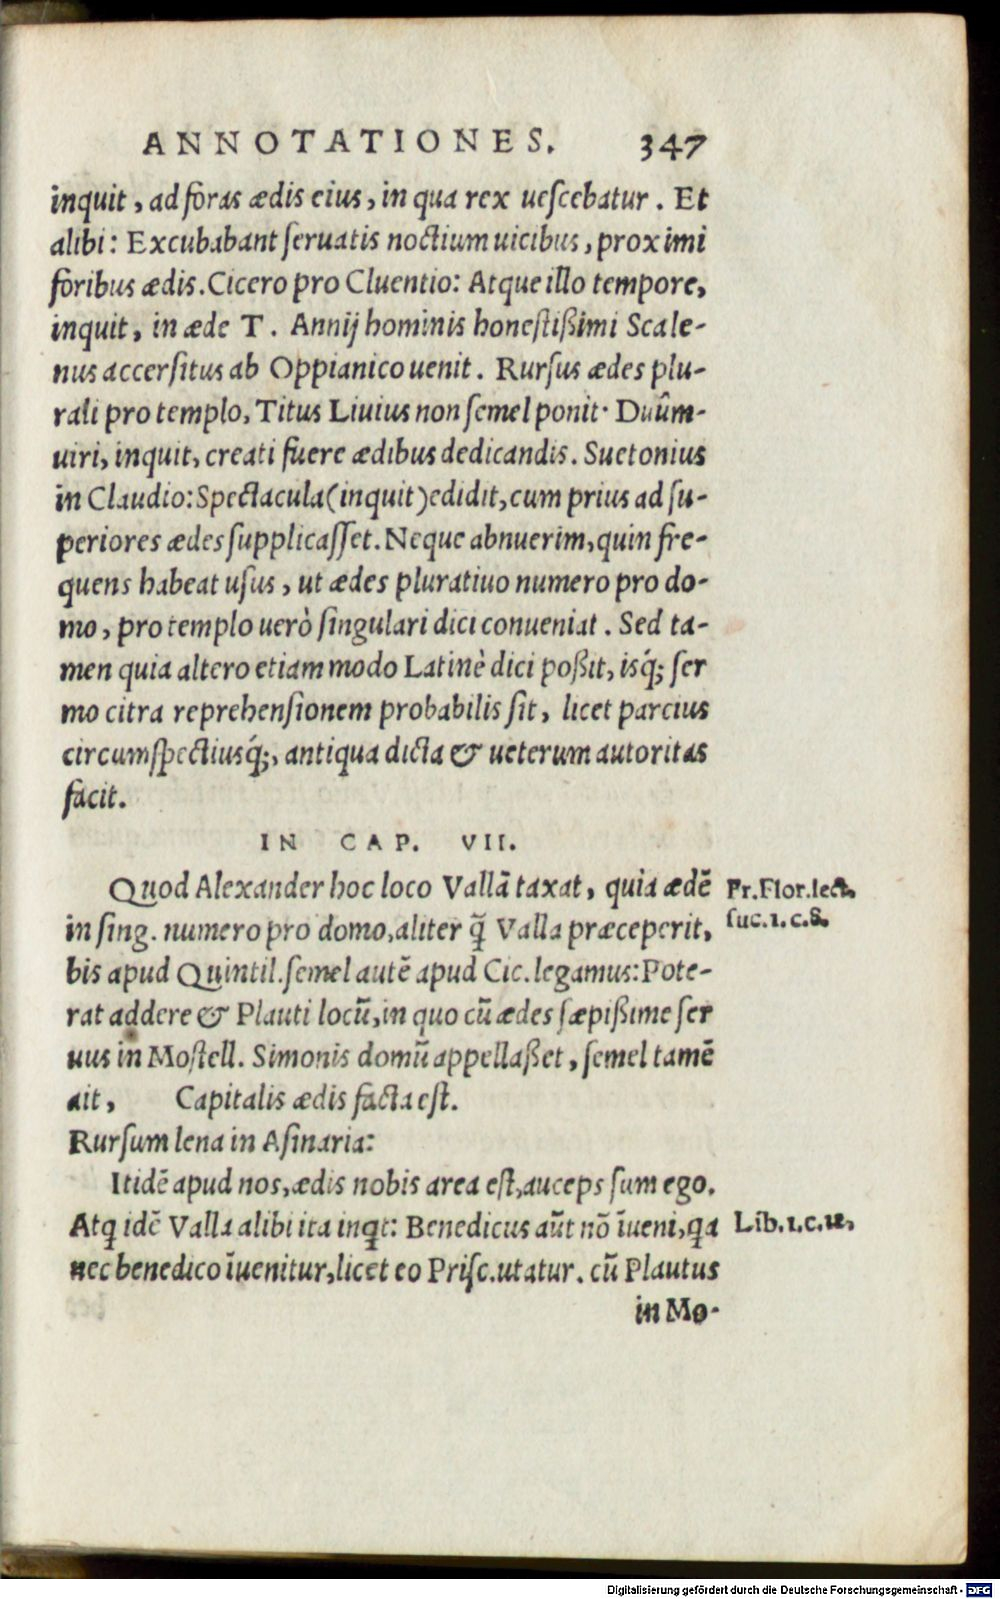 ANNOTATIONES. 347
inquit, ad foras ædis eius, in qua rex uescebatur. Et
alibi: Excubabant seruatis noctium uicibus, proximi
foribus ædis. Cicero pro Cluentio: Atque illo tempore,
inquit, in æde T. Annij hominis honestißimi Scale-
nus accersitus ab Oppianico uenit. Rursus ædes plu-
rali pro templo, Titus Liuius non semel ponit· Duûm-
uiri, inquit, creati fuere ædibus dedicandis. Suetonius
in Claudio: Spectacula (inquit) edidit, cum prius ad su-
periores ædes supplicasset. Neque abnuerim, quin fre-
quens habeat usus, ut ædes pluratiuo numero pro do-
mo, pro templo uerò singulari dici conueniat. Sed ta-
men quia altero etiam modo Latinè dici poßit, isq́; ser
mo citra reprehensionem probabilis sit, licet parcius
circumspectiusq́;, antiqua dicta & ueterum autoritas
facit.
IN CAP. VII.
Quod Alexander hoc loco Vallã taxat, quia ædẽ
Pr. Flor. lect.
in sing. numero pro domo, aliter q̃ Valla præceperit,
suc. 1. c. 8.
bis apud Quintil. semel autẽ apud Cic. legamus: Pote-
rat addere & Plauti locũ, in quo cũ ædes sæpißime ser
uus in Mostell. Simonis domũ appellaßet, semel tamẽ
ait, Capitalis ædis facta est.
Rursum lena in Asinaria:
Itidẽ apud nos, ædis nobis area est, auceps sum ego.
Atq; idẽ Valla alibi ita inqt: Benedicus aũt nõ ĩueni, qa
Lib. 1. c. 12.
nec benedico ĩuenitur, licet eo Prisc. utatur. cũ Plautus
in Mo-
Digitalisierung gefördert durch die Deutsche Forschungsgemeinschaft - DFG